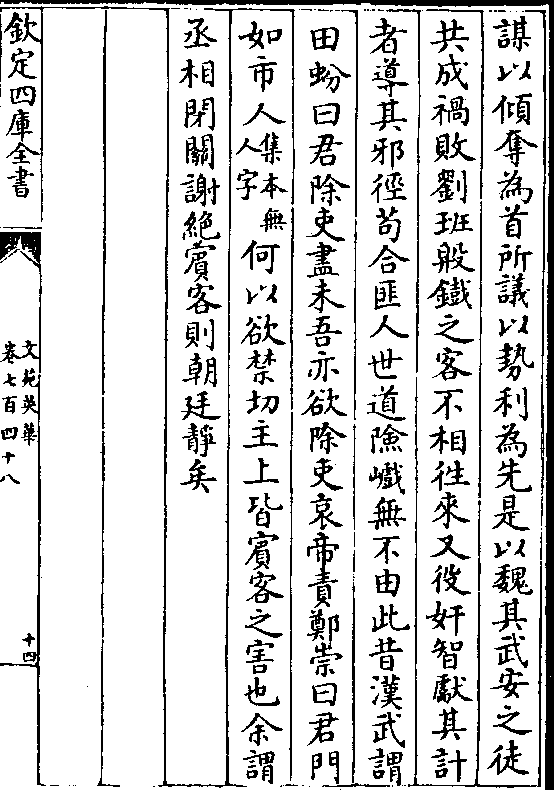 謀以傾奪為首所議以勢利為先是以魏其武安之徒
共成禍敗劉班殷鐵之客不相徃來又役奸智獻其計
者導其邪徑苟合匪人世道險巇無不由此昔漢武謂
田蚡曰君除吏盡未吾亦欲除吏哀帝責鄭崇曰君門
如市人集本無人字何以欲禁切主上皆賓客之害也余謂
丞相閉關謝絶賓客則朝廷靜矣
欽定四庫全書
文苑英華
卷七百四十八
十四